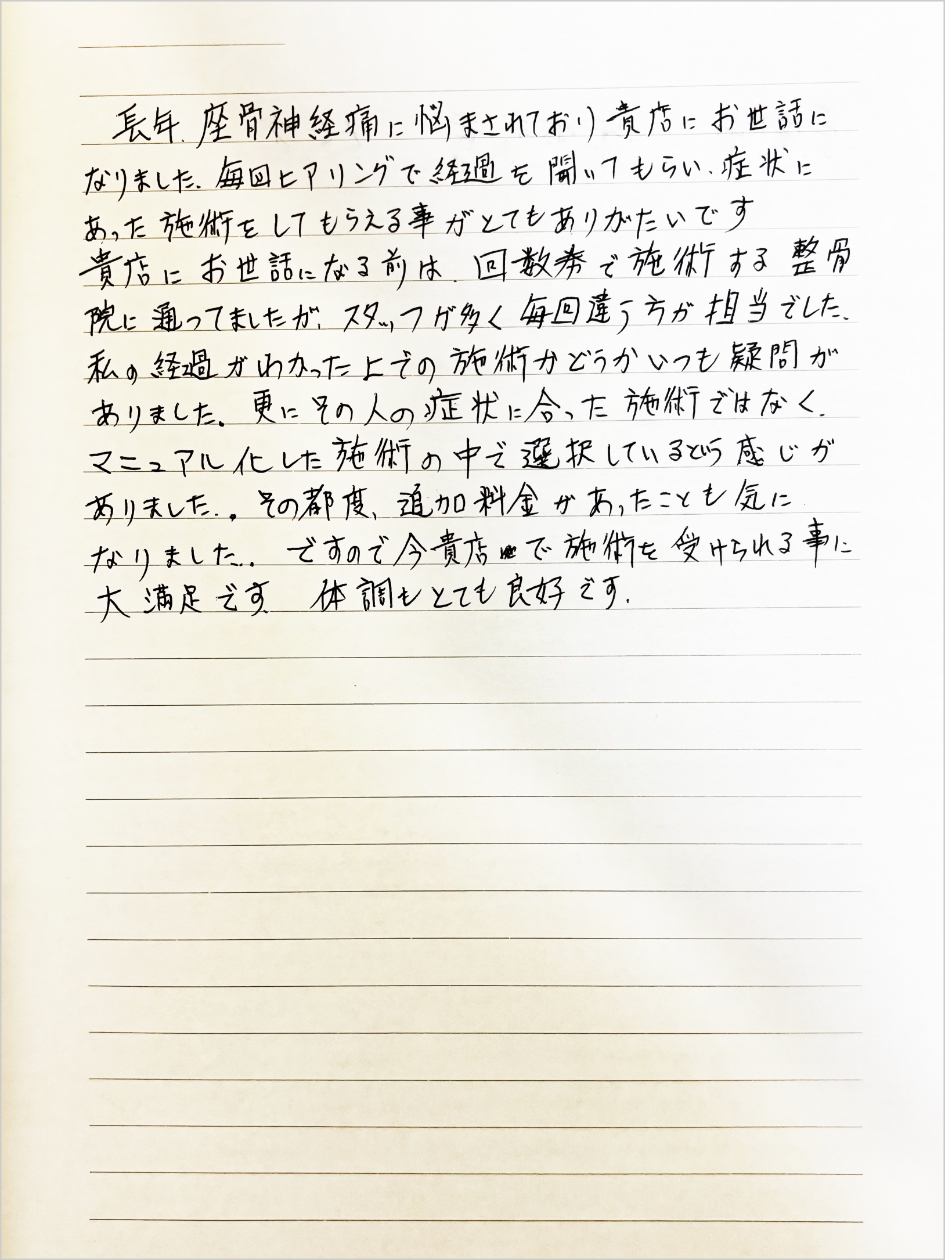 長年、座骨神経痛に悩まされており貴店にお世話に
なりました。毎回ヒアリングで経過を聞いてもらい、症状に
あった施術をしてもらえる事がとてもありがたいです
貴店にお世話になる前は、回数券で施術する整骨
院に通ってましたが、スタッフが多く毎回違う方が担当でした、
私の経過がわかった上での施術かどうかいつも疑問が
ありました。更にその人の症状に合った施術ではなく、
マニュアル化した施術の中で選択しているという感じが
ありました。。その都度、追加料金があったことも気に
なりました。。ですので今貴店で施術を受けられる事に
大満足です。体調もとても良好です。